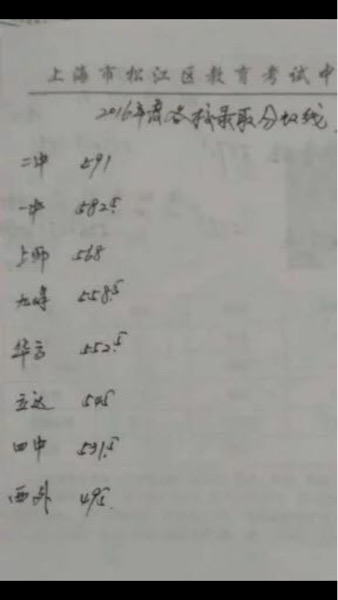 上海市松江区教育考试中
2016年度各校录取分数线
二中 591
一中 582.5
上师 568
九峰 558.5
华言 552.5
立达 545
四中 531.5
西外 495.